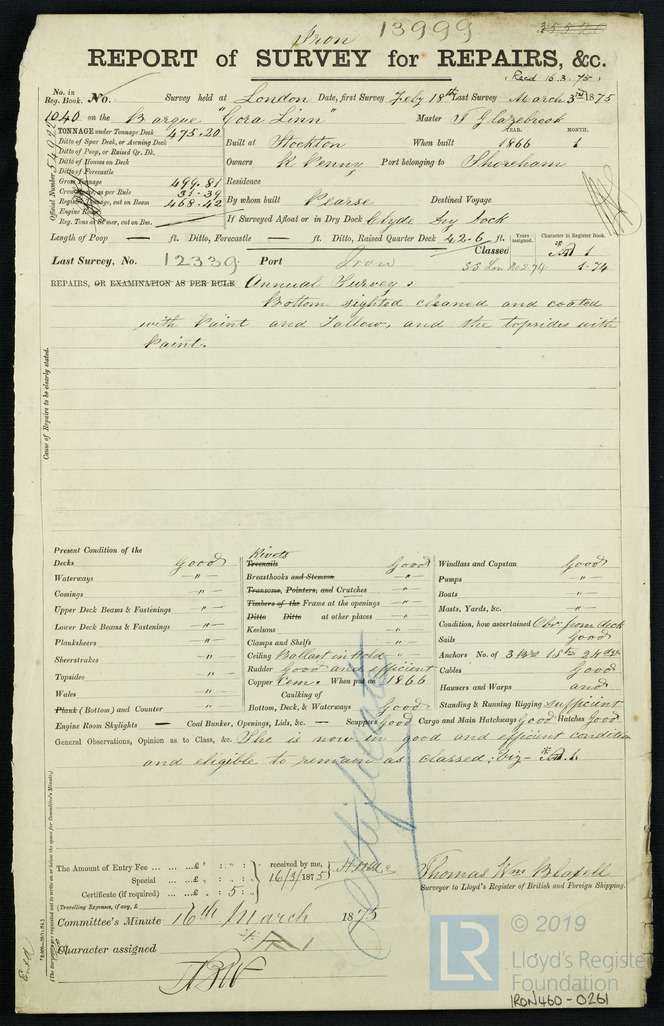 Iron 13999
REPORT of SURVEY for REPAIRS, &c.
Recd 16.3.75
No. in Reg. Book. No. Survey held at London Date, first Survey Feby 18th Last Survey March 3rd 1875
1040 on the Barque "Cora Linn" Master
TONNAGE under Tonnage Deck 475.20
Ditto of Spar Deck, or Awning Deck
Ditto of Poop, or Raised Qr. Dk.
Ditto of Houses on Deck
Ditto of Forecastle
Gross Tonnage 499.81
Crew Space, as per Rule 31.39
Register Tonnage, out on Beam 468.42
Engine Room
Reg. Tons as Steamer, cut on Bm.
Official Number
Built at Stockton When built YEAR. 1866 MONTH. 1
Owners R Penny Port belonging to Shoreham
Residence
By whom built Pearse Destined Voyage
If Surveyed Afloat or in Dry Dock Clyde Dry Dock
Length of Poop — ft. Ditto, Forecastle — ft. Ditto, Raised Quarter Deck 42.6 ft.
Years assigned. Character in Register Book.
Classed A 1
SS Lon No 2 74 5.74
Last Survey, No. 12339 Port Iron
REPAIRS, OR EXAMINATION AS PER RULE Annual Survey
Bottom sighted cleaned and coated
with Paint and Tallow, and the topsides with
Paint.
Cause of Repairs to be clearly stated.
Present Condition of the
Decks Good
Waterways "
Comings "
Upper Deck Beams & Fastenings "
Lower Deck Beams & Fastenings "
Planksheers "
Sheerstrakes "
Topsides "
Wales "
Plank (Bottom) and Counter "
Rivets
Treenails Good
Breasthooks and Stemson "
Transoms, Pointers, and Crutches "
Timbers of the Frame at the openings "
Ditto Ditto at other places "
Keelsons "
Clamps and Shelfs "
Ceiling Ballast in Hold "
Rudder Good and efficient
Copper Cemt. When put on 1866
Caulking of
Bottom, Deck, & Waterways Good
Windlass and Capstan Good
Pumps "
Boats "
Masts, Yards, &c. "
Condition, how ascertained Obs. from deck
Sails Good
Anchors No. of
Cables Good
Hawsers and Warps and
Standing & Running Rigging sufficient
Engine Room Skylights — Coal Bunker, Openings, Lids, &c. — Scuppers Good Cargo and Main Hatchways Good Hatches Good
General Observations, Opinion as to Class, &c. She is now in good and efficient condition
and eligible to remain as classed: viz - A 1.
The Amount of Entry Fee ... ... ...£ : :
Special ... ...£ : :
Certificate (if required) ...£ : 5 :
(Travelling Expenses, if any, £
received by me,
16/3/1875
Thomas Wm
Surveyor to Lloyd's Register of British and Foreign Shipping.
Committee's Minute 16th March 1875
Character assigned A 1
(The Surveyors are requested not to write on or below the space for Committee's Minute.)
© 2019
LR
Lloyd's Register
Foundation
IRON460-0261